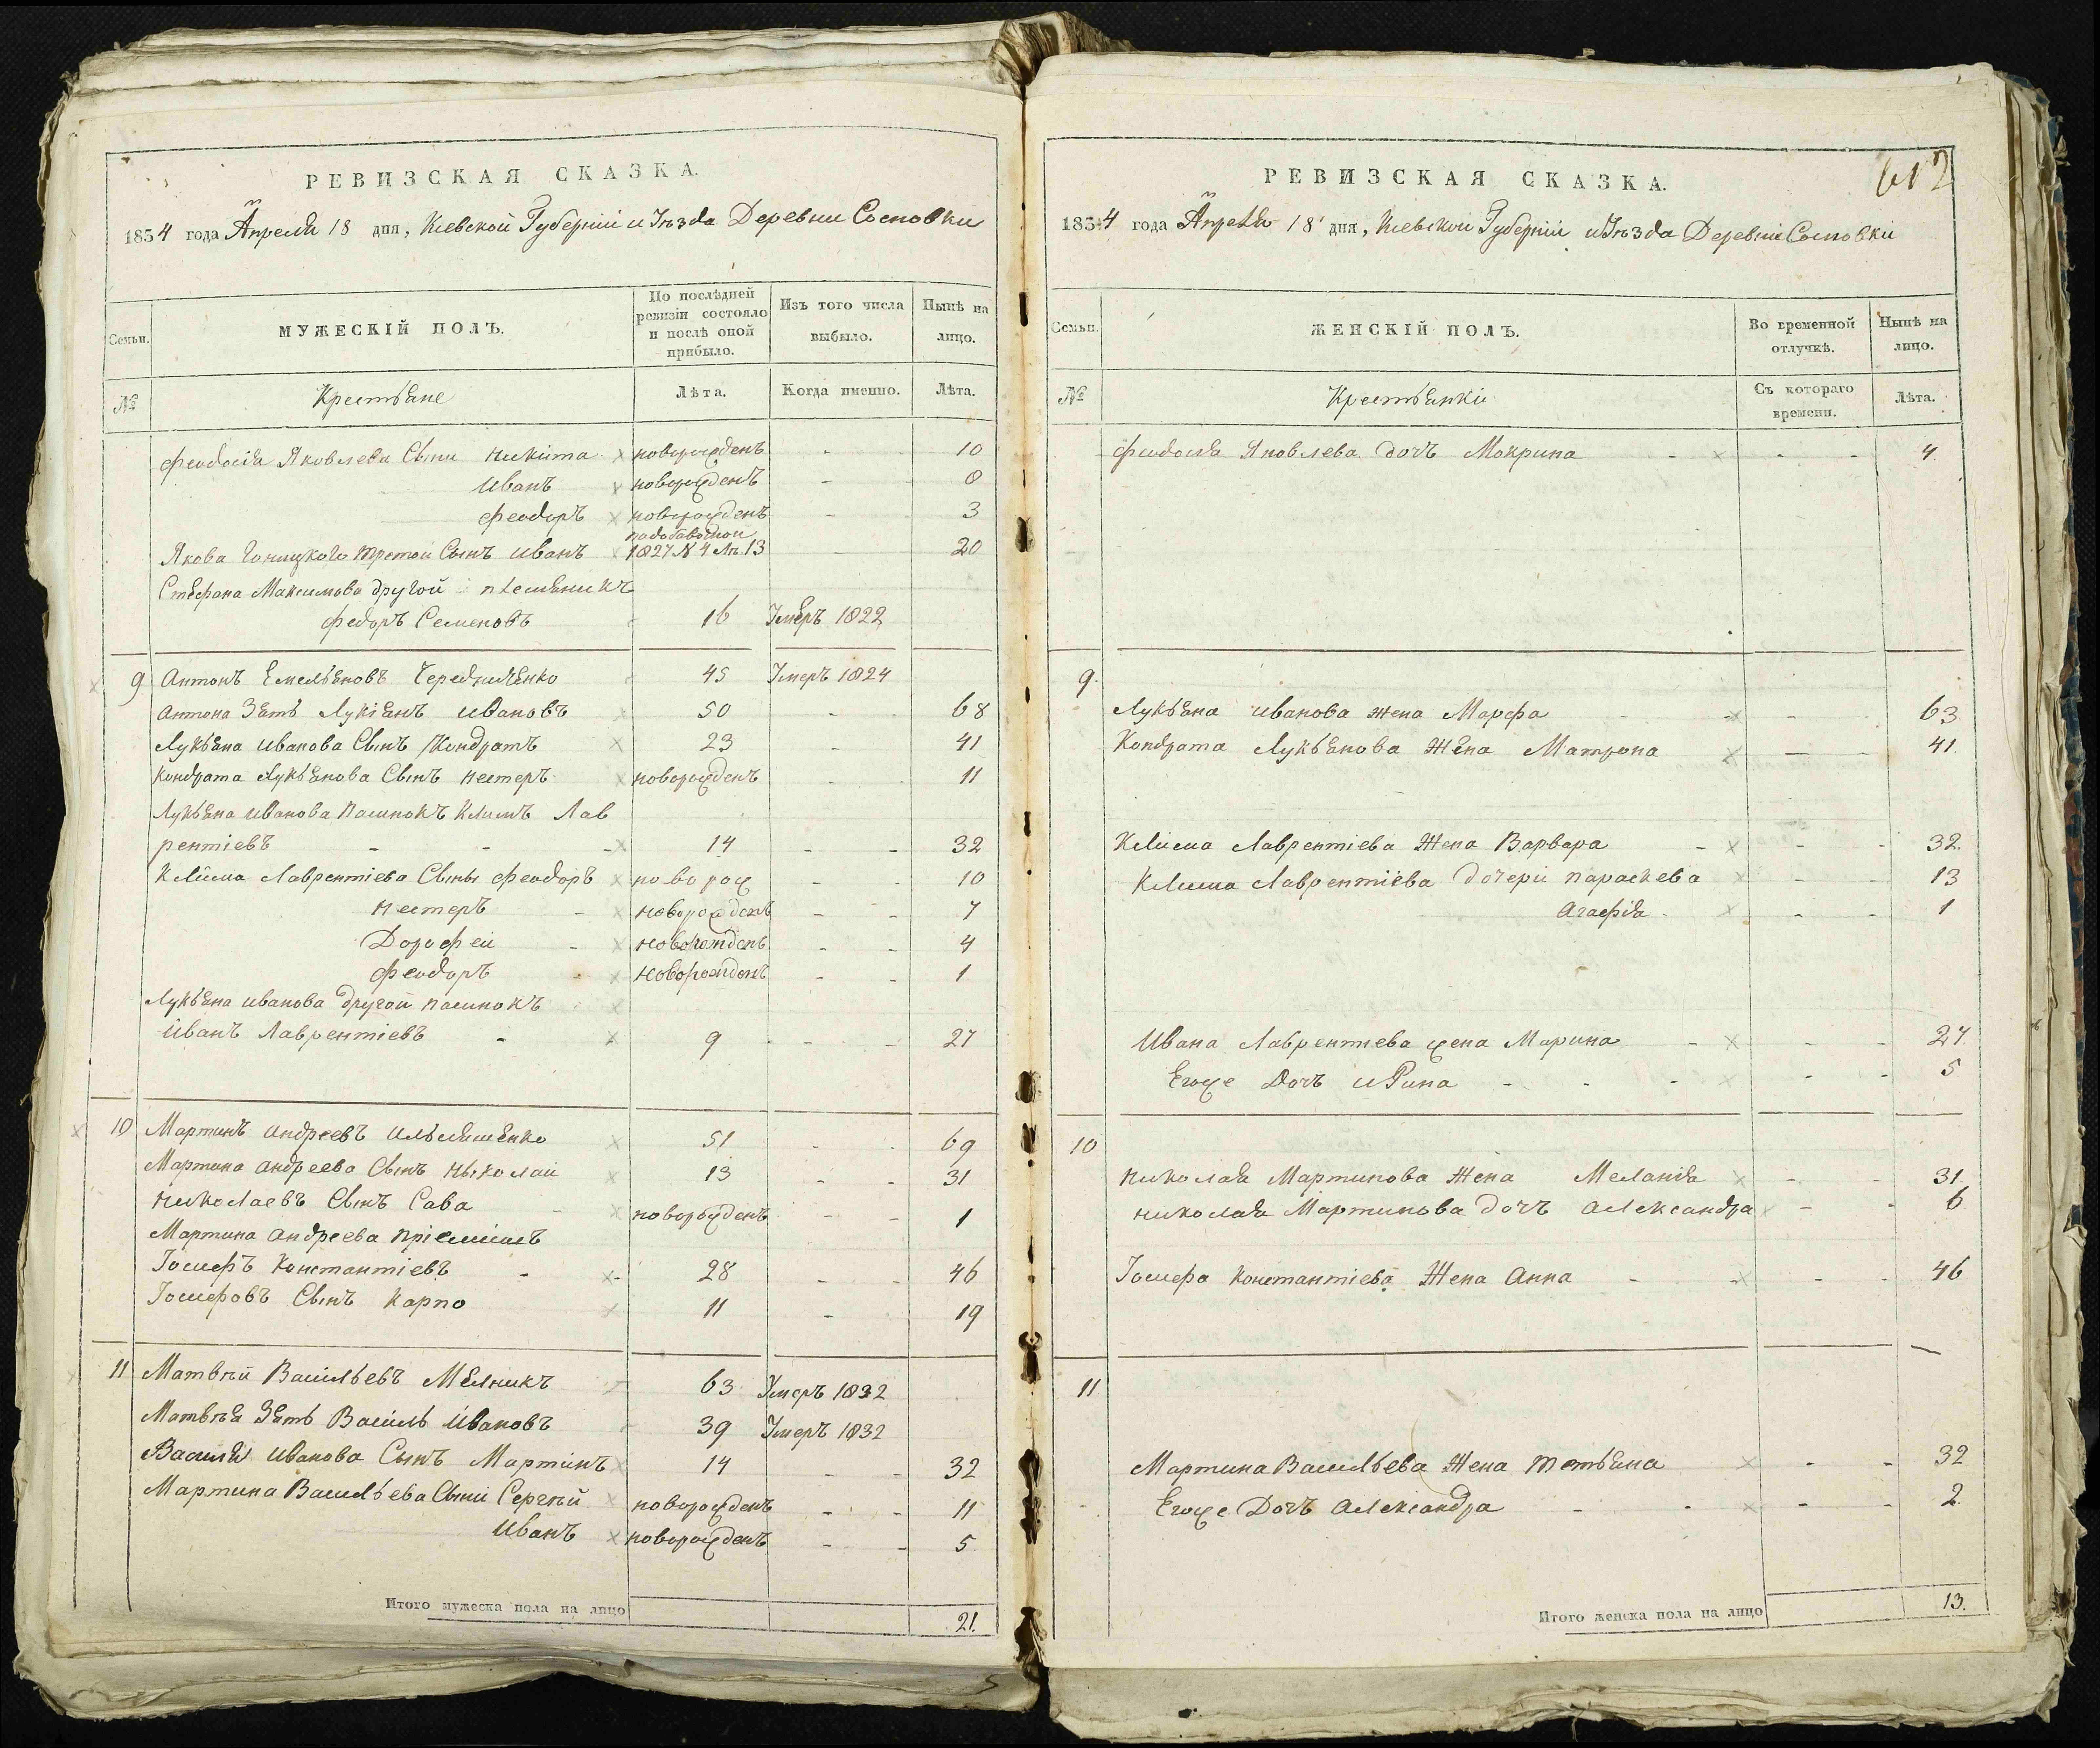 РЕВИЗСКАЯ СКАЗКА.
1834 года Апреля 18 дня, Киевской Губерніи и Уѣзда Деревни Сосновки
Семьи. МУЖЕСКІЙ ПОЛЪ. По послѣдней ревизіи состояло и послѣ оной прибыло. Изъ того числа выбыло. Нынѣ на лицо.
№ Крестьяне Лѣта. Когда именно. Лѣта.
Феодосія Яковлева Сыни Никита новорожденъ - 10
Иванъ новорожденъ - 8
Феодоръ новорожденъ - 3
подобавочной
Якова третой Сынъ Иванъ 1827 № 4 Лѣ. 13 - 20
Стефана Максимова другой племяникъ
Федоръ Семеновъ 16 Умеръ 1822
9 Антонъ Емельяновъ Чередниченко 45 Умеръ 1824
Антона Зять Лукіянъ Ивановъ 50 - 68
Лукьяна Иванова Сынъ Кондратъ 23 - 41
Кондрата Лукьянова Сынъ Нестеръ новорожденъ - 11
Лукьяна Иванова Пасинокъ Климъ Лав
рентіевъ - - 14 - - 32
Клима Лаврентіева Сыны Феодоръ новорож - 10
Нестеръ - новорожденъ - - 7
Дорофей - новорожденъ - - 4
Феодоръ - новорожденъ - - 1
Лукьяна Иванова другой пасинокъ
Иванъ Лаврентіевъ - 9 - - 27
10 Мартинъ Андреевъ Ильяшенко 51 - - 69
Мартина Андреева Сынъ Николай 13 - - 31
Николаевъ Сынъ Сава - новорожденъ - - 1
Мартина Андреева пріемишъ
Іосифъ Константіевъ - 28 - - 46
Іосифовъ Сынъ Карпо 11 - 19
11 Матвѣй Васильевъ Мелникъ 63 Умеръ 1832
Матвѣя Зять Василь Ивановъ 39 Умеръ 1832
Василія Иванова Сынъ Мартинъ 14 - - 32
Мартина Васильева Сыни Сергѣй новорожденъ - - 11
Иванъ новорожденъ - - 5
Итого мужеска пола на лицо 21.
612
РЕВИЗСКАЯ СКАЗКА.
1834 года Апреля 18 дня, Киевской Губерніи и Уѣзда Деревни Сосновки
Семьи. ЖЕНСКІЙ ПОЛЪ. Во временной отлучкѣ. Нынѣ на лицо.
№ Крестьянки Съ котораго времени. Лѣта.
Феодосія Яковлева дочъ Мокрина - - - 4
9.
Лукьяна Иванова жена Марфа - - 63
Кондрата Лукьянова Жена Матрона - - 41.
Клима Лаврентіева Жена Варвара - - - 32.
Клима Лаврентіева дочери Параскева - - 13
Агафія - - 1
Ивана Лаврентиева жена Марина - - - 27.
Егоже Дочъ Ирина - - - - - 5
10
Николая Мартинова Жена Меланія - - 31
Николая Мартинова дочъ Александра - - 6
Іосифа Константіева Жена Анна - - - - 46
11
Мартина Васильева Жена Тетьяна - - 32
Егоже Дочъ Александра - - - - 2.
Итого женска пола на лицо 13.